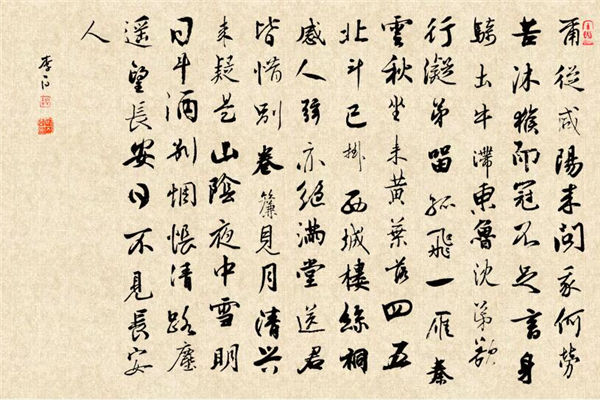 爾從咸陽來問我何勞
苦沐猴而冠不足言身
騎土牛滯東魯沈弟欲
行凝弟留孤飛一雁秦
雲秋坐來黃葉落四五
北斗已掛西城樓絲桐
感人弦亦絕滿堂送君
皆惜別卷簾見月清兴
來疑是山陰夜中雪明
日斗酒別惆悵清路塵
遥望長安日不見長安
人
李白